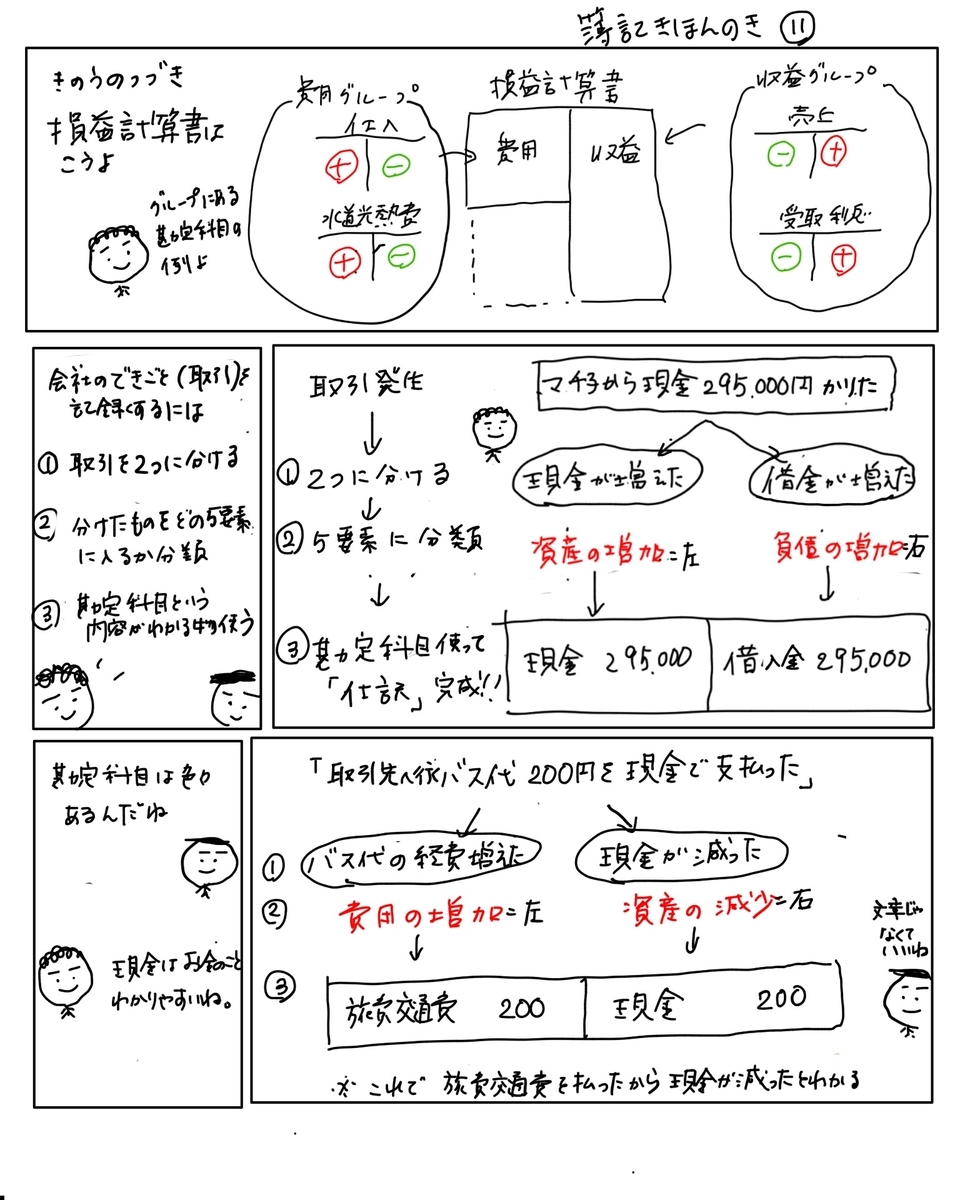 簿記きほんのき ⑪
きのうのつづき
損益計算書は
こうよ
グループにある
勘定科目の
例よ
費用グループ
仕入
⊕ ⊖
水道光熱費
⊕ ⊖
損益計算書
費用 収益
収益グループ
売上
⊖ ⊕
受取利息
⊖ ⊕
会社のできごと(取引)を
記録するには
① 取引を2つに分ける
② 分けたものをどの5要素
に入るか分類
③ 勘定科目という
内容がわかる物使う
取引発生
↓
① 2つに分ける
↓
② 5要素に分類
↓
③ 勘定科目使って
「仕訳」完成!!
マチ子から現金295,000円かりた
現金が増えた 借金が増えた
資産の増加=左 負債の増加=右
現金 295,000 借入金 295,000
勘定科目は色々
あるんだね
現金はお金のこと
わかりやすいね。
「取引先へ行くバス代200円を現金で支払った」
① バス代の経費増えた 現金が減った
② 費用の増加=左 資産の減少=右
③ 旅費交通費 200 現金 200
文章じゃ
なくて
いいね
※これで旅費交通費を払ったから現金が減ったとわかる